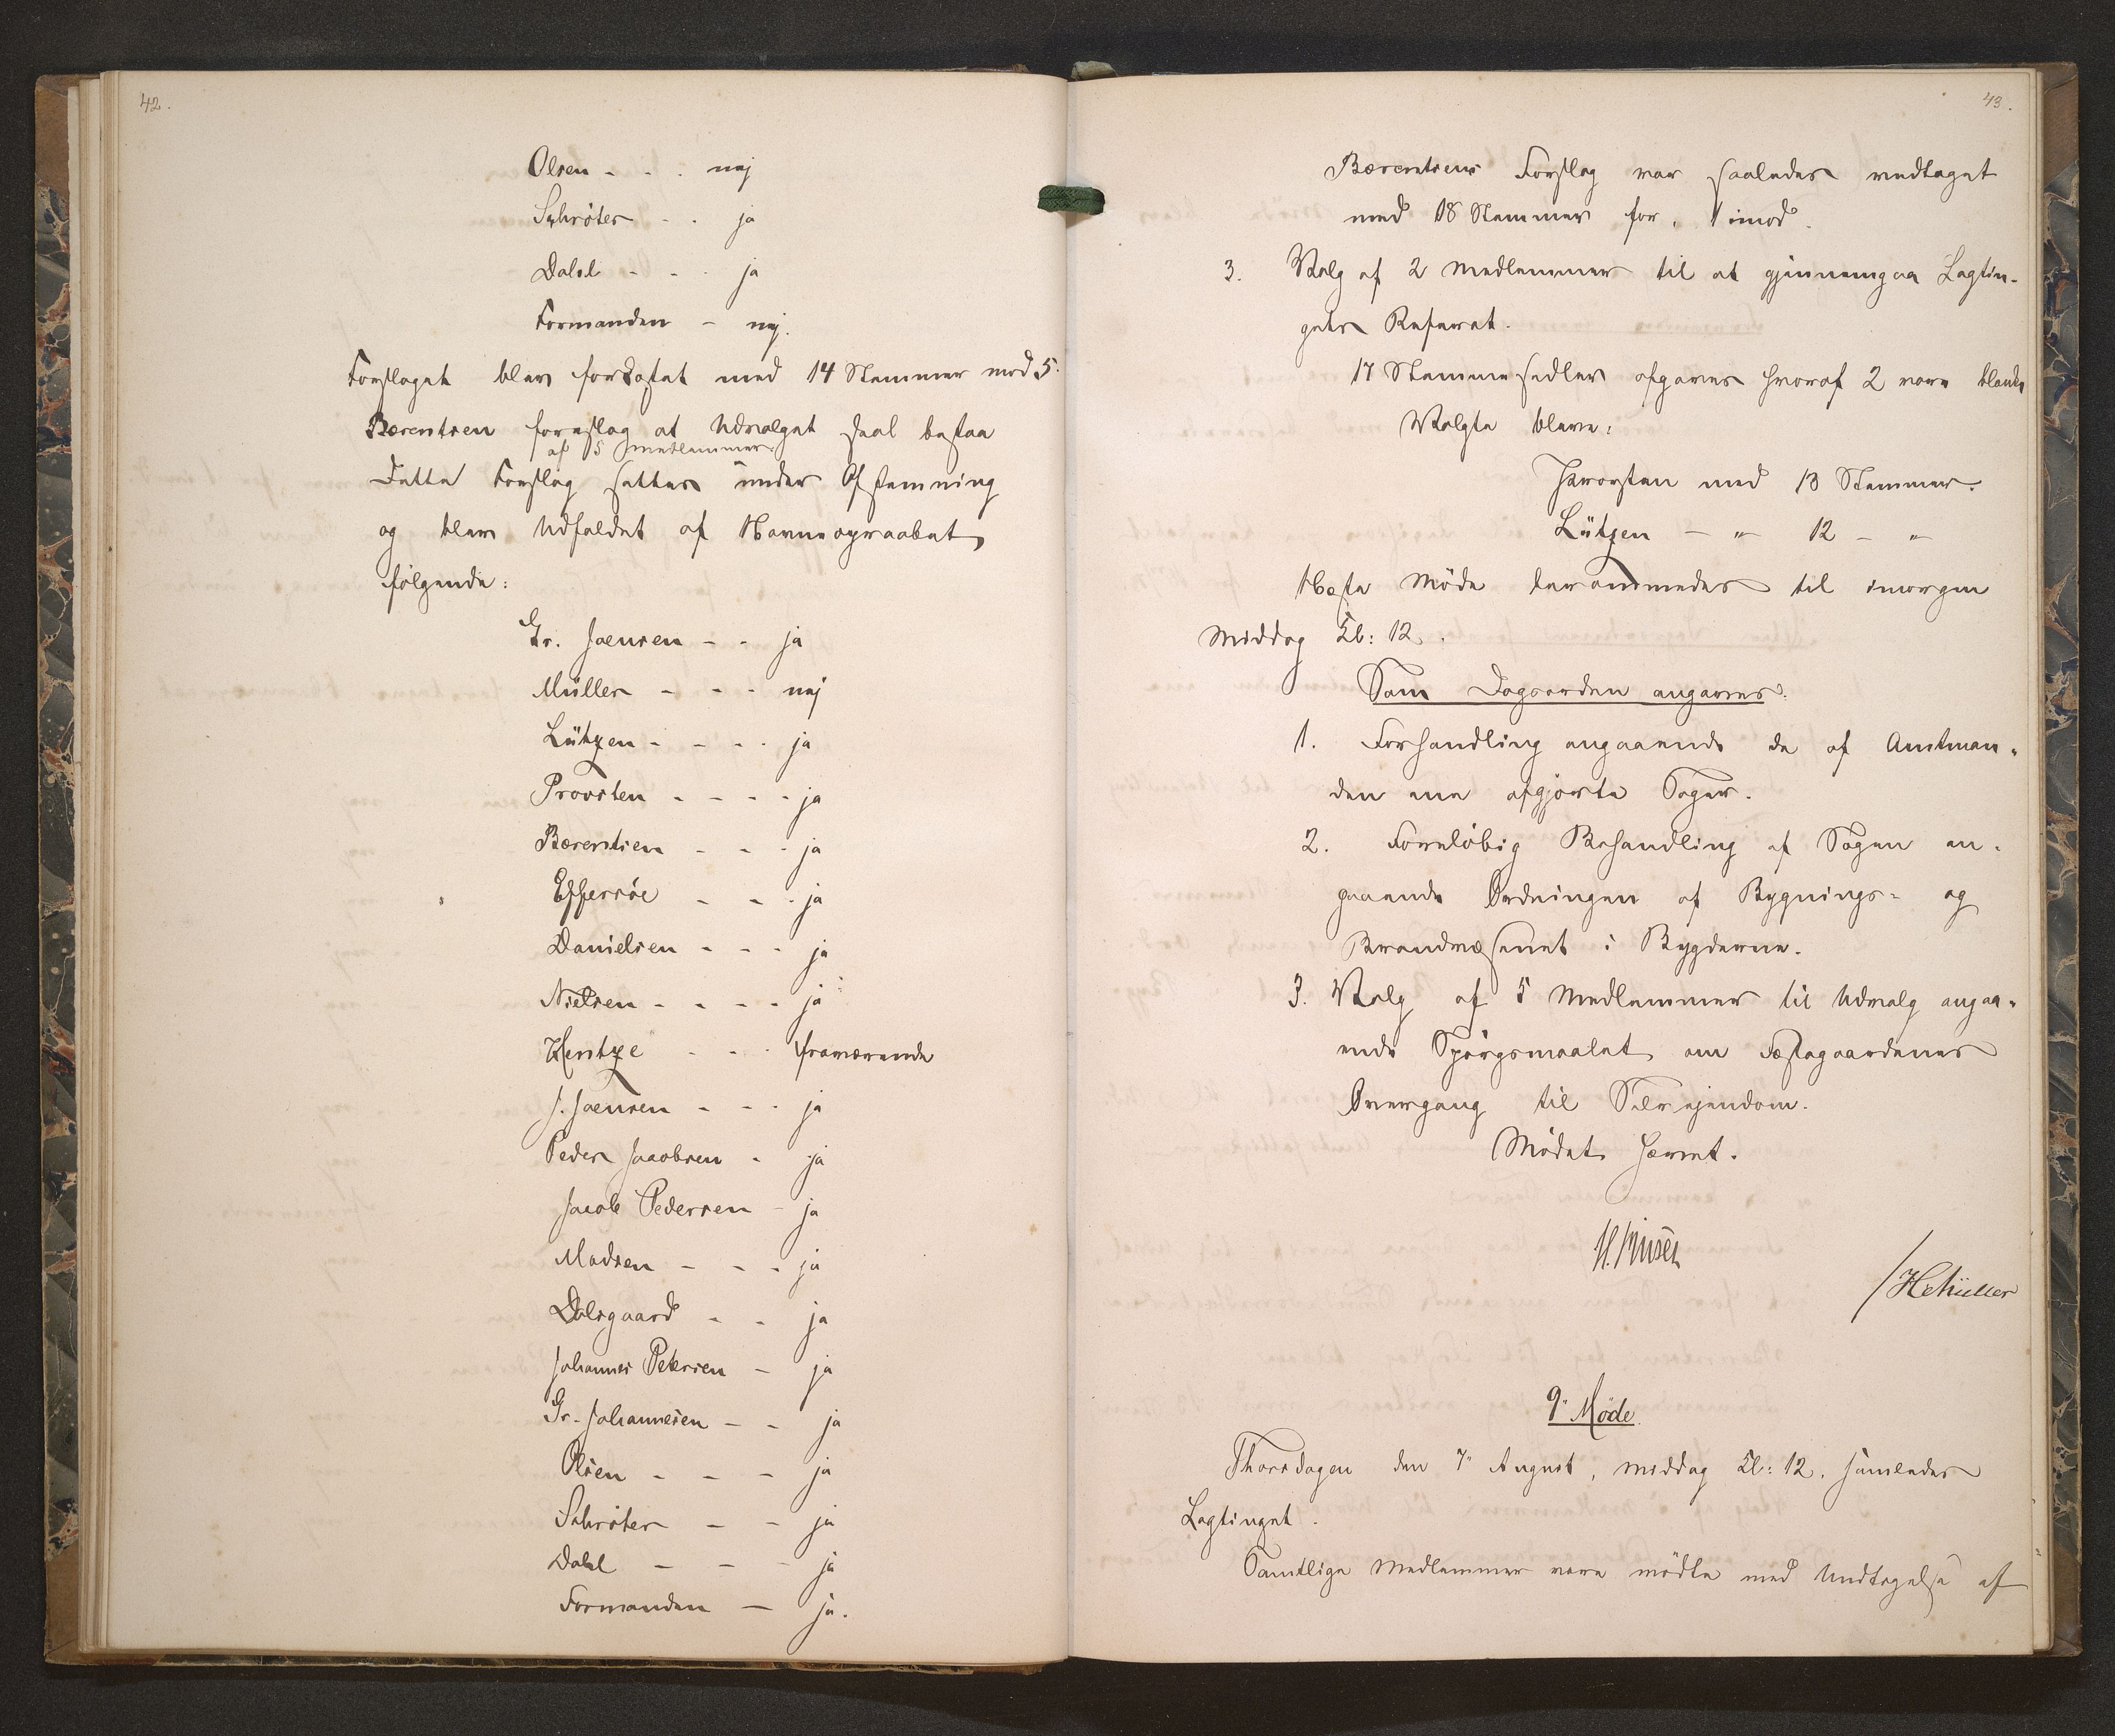 42.
Olsen - - . nej
Schrøter - . ja
Dahl - - . ja
Formanden - nej.
Forslaget blev forkastet med 14 Stemmer mod 5.
Bærentsen foreslog at Udvalget skal bestaa
af 5 Medlemmer.
Dette Forslag sattes under Afstemning
og blev Udfaldet af Navneopraabet
følgende:
Gr. Joensen - - ja
Müller - - - nej
Lützen - - - . ja
Provsten - - - - ja
Bærentsen - - - ja
Effersöe - - . ja
Danielsen - - - ja
Nielsen - - - - ja
Kentze - - . fraværende
J. Joensen - - - ja
Peder Jacobsen - ja
Jacob Pedersen - ja
Madsen - - - ja
Dalsgaard - - ja
Johannes Petersen - ja
Gr. Johannesen - - ja
Olsen - - - ja
Schrøter - - ja
Dahl - - - ja
Formanden - ja.
43.
Bærentsens Forslag var saaledes vedtaget
med 18 Stemmer for, 1 imod.
3. Valg af 2 Medlemmer til at gjennemgaa Lagtin-
gets Referat.
17 Stemmesedler afgaves hvoraf 2 vare blanke
Valgte bleve:
Provsten med 13 Stemmer.
Lützen - " 12 - "
Næste Møde berammedes til imorgen
Middag Kl: 12.
Som Dagsorden angaves:
1. Forhandling angaaende de af Amtman-
den ene afgjorte Sager.
2. Foreløbig Behandling af Sagen an-
gaaende Ordningen af Bygnings- og
Brandvæsenet i Bygderne.
3. Valg af 5 Medlemmer til Udvalg angaa-
ende Spørgsmaalet om Fæstegaardenes
Overgang til Selvejendom.
Mødet hævet.
/HCMüller
9' Møde
Thorsdagen den 7' August, Middag Kl: 12. samledes
Lagtinget.
Samtlige Medlemmer vare mødte med Undtagelse af